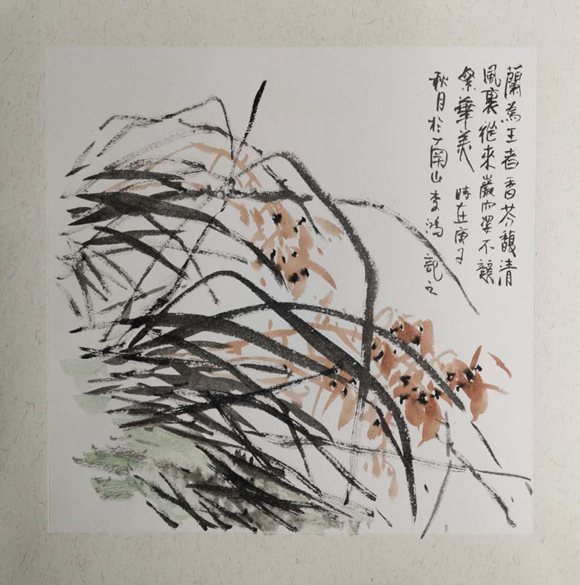 蘭為王者香芬馥清
風裏從來巖不讓
繁華美 時在庚子
秋月於南山李鴻記之